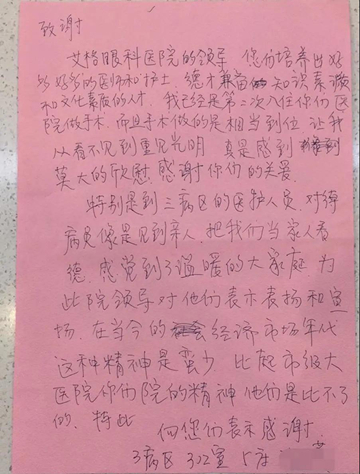 致谢
艾格眼科医院的领导 你们培养出好
好多的医师和护士 德才兼备 知识素
和文化素质的人才 我已经是第二次入住你们医
院做手术 而且手术做的是相当到位 让我
从看不见到重见光明 真是感到
莫大的欣慰 感谢你们的关爱
特别是到三病区的医护人员 对待
病员像是见到亲人 把我们当家人看
德 感觉到了温暖的大家庭 为
此院领导对他们表示表扬和宣
扬 在当今的经济市场年代
这种精神是蛮少 比起市级大
医院你们院的精神 他们是比不了
的 特此
向您们表示感谢
3病区 302室 5床
女